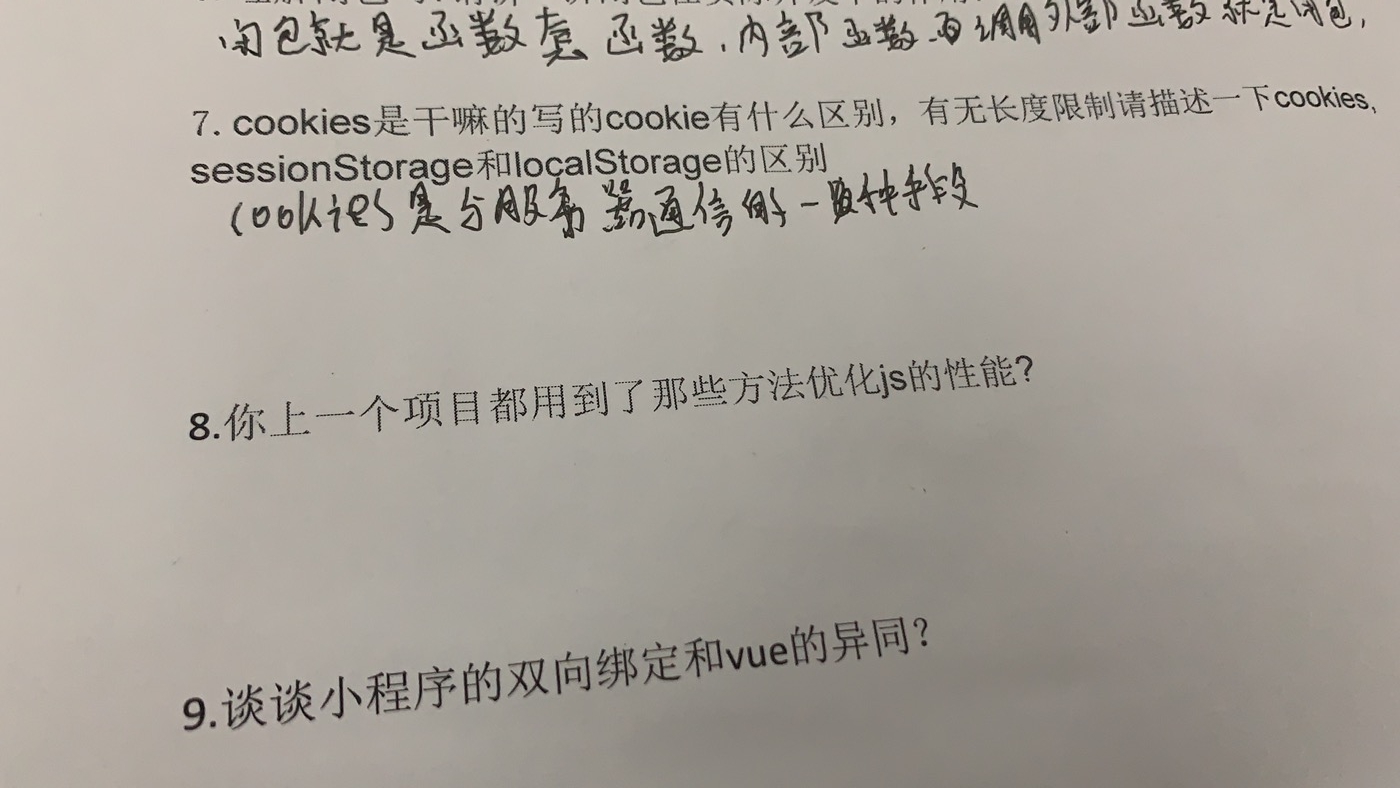 闭包就是函数套函数,内部函数再调用外部函数就是闭包,
7. cookies是干嘛的写的cookie有什么区别，有无长度限制请描述一下cookies,
sessionStorage和localStorage的区别
cookies是与服务器通信的一种手段
8.你上一个项目都用到了那些方法优化js的性能?
9.谈谈小程序的双向绑定和vue的异同?